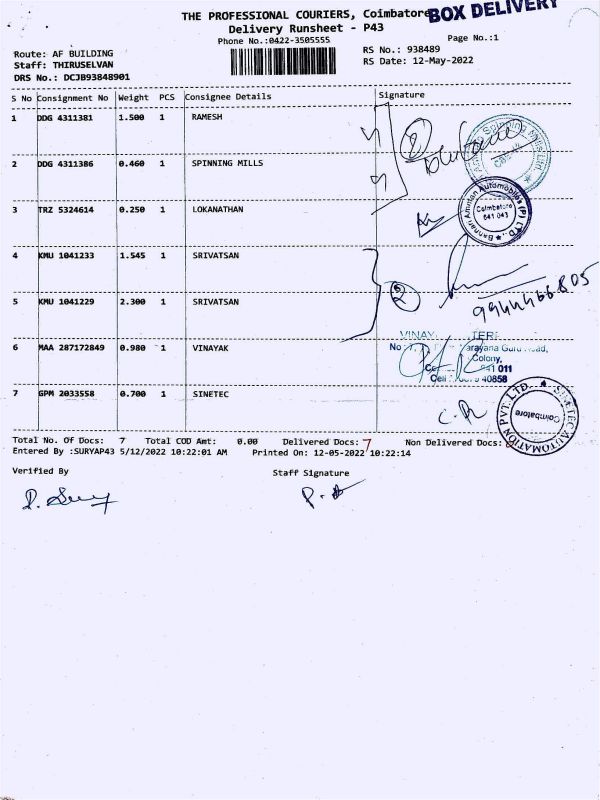 THE PROFESSIONAL COURIERS, Coimbatore
BOX DELIVERY
Delivery Runsheet - P43
Phone No.:0422-3505555
Page No.:1
Route: AF BUILDING
RS No.: 938489
Staff: THIRUSELVAN
RS Date: 12-May-2022
DRS No.: DCJB93848901
S No Consignment No Weight PCS Consignee Details Signature
1 DDG 4311381 1.500 1 RAMESH
2 DDG 4311386 0.460 1 SPINNING MILLS
3 TRZ 5324614 0.250 1 LOKANATHAN
Bannari Amman Automobiles (P) LTD.,
Coimbatore
641 043
4 KMU 1041233 1.545 1 SRIVATSAN
2
9944466805
5 KMU 1041229 2.300 1 SRIVATSAN
6 MAA 287172849 0.980 1 VINAYAK
Colony,
7 GPM 2033558 0.700 1 SINETEC
SINETEC AUTOMATION PVT. LTD.
Coimbatore
Total No. Of Docs: 7 Total COD Amt: 0.00 Delivered Docs: 7 Non Delivered Docs:
Entered By :SURYAP43 5/12/2022 10:22:01 AM Printed On: 12-05-2022 10:22:14
Verified By Staff Signature